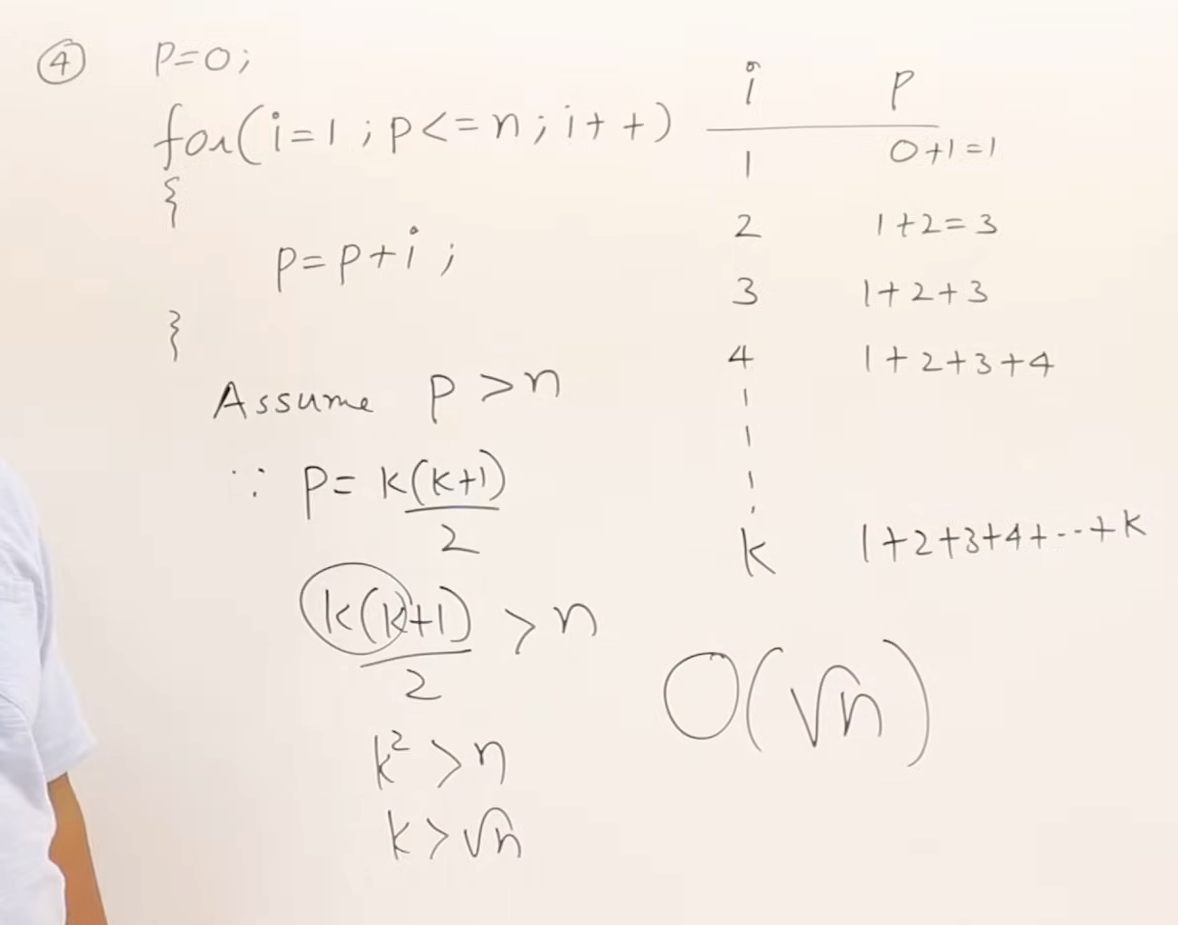 ④ P=0;
for(i=1;p<=n;i++)
{
p=p+i;
}
Assume p>n
∵ p=k(k+1)/2
k(k+1)/2 > n
k²>n
k>√n
i p
1 0+1=1
2 1+2=3
3 1+2+3
4 1+2+3+4
k 1+2+3+4+--+k
O(√n)